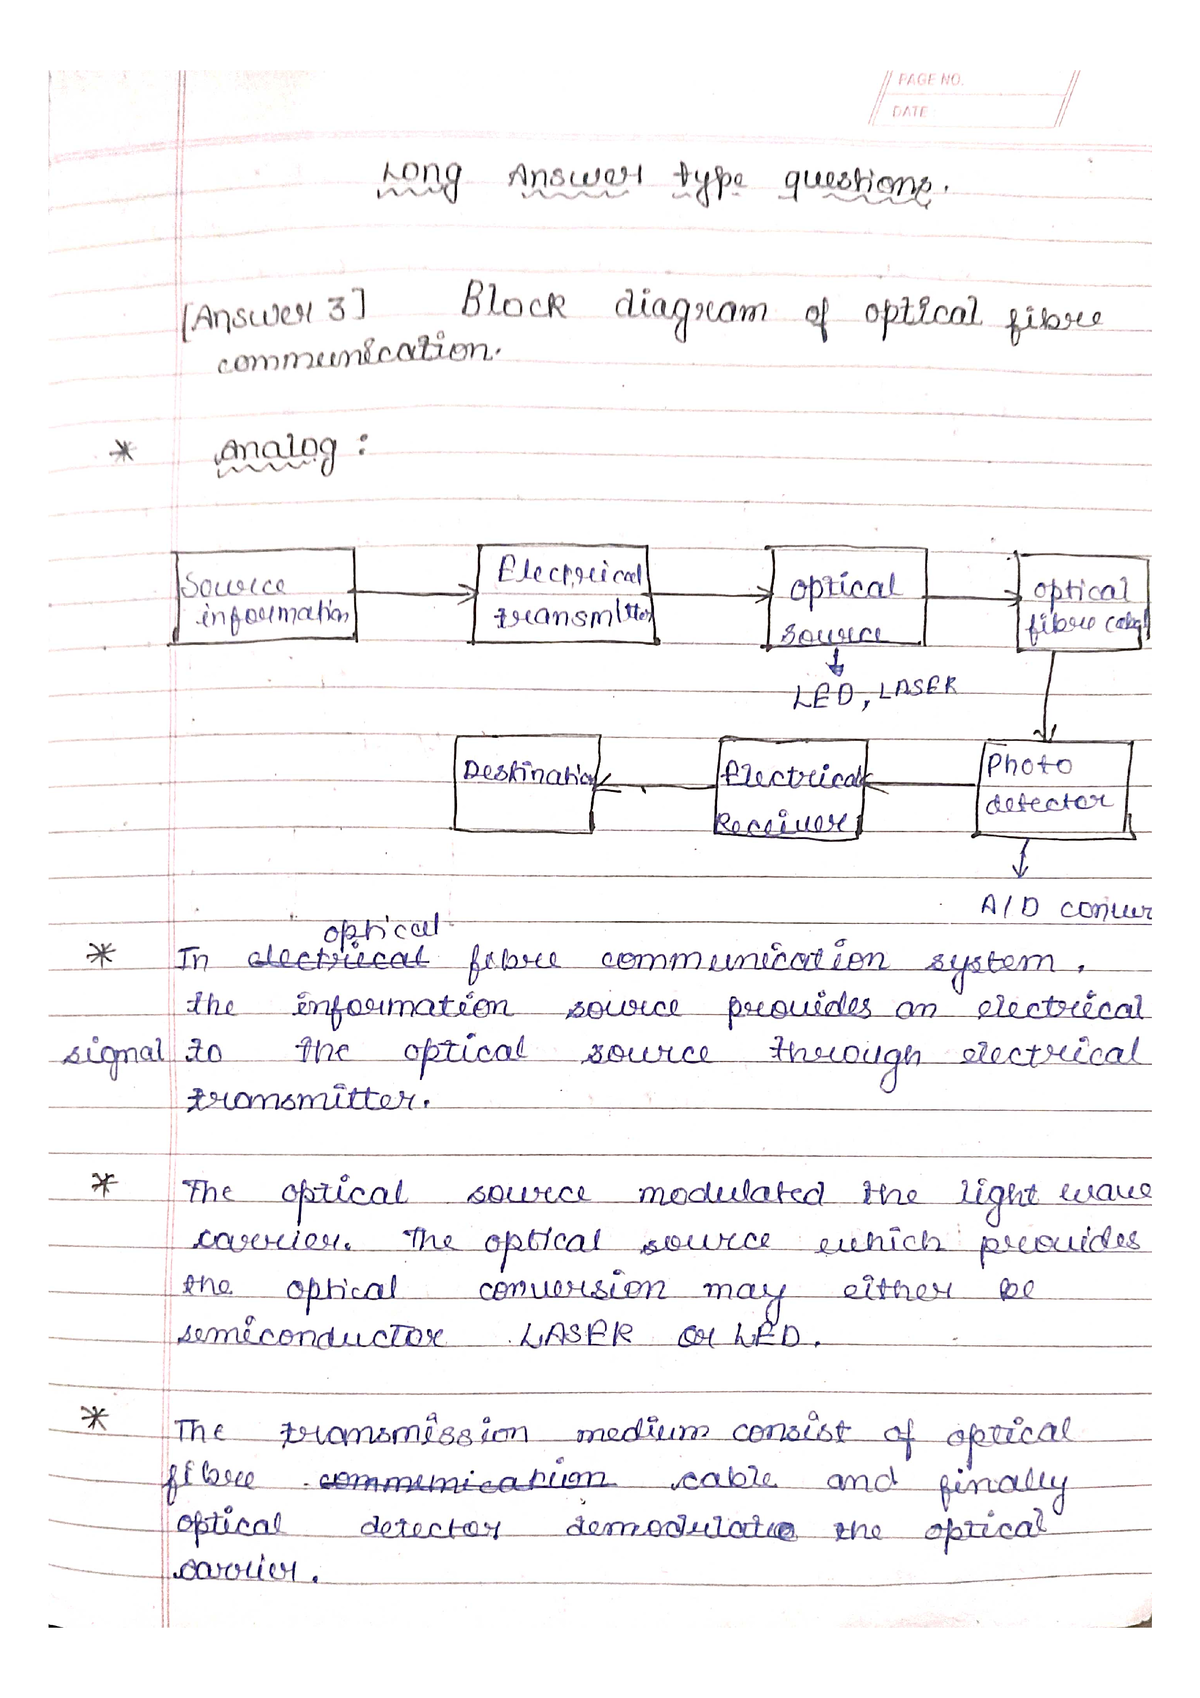 PAGE NO.
DATE
Long Answer type questions.
[Answer 3] Block diagram of optical fibre
communication.
* Analog :
Source
information
Electrical
transmitter
optical
source
optical
fibre
LED, LASER
Destination
Electrical
Receiver
Photo
detector
A/D conver
optical
* In electrical fibre communication system,
the information source provides an electrical
signal to the optical source through electrical
transmitter.
* The optical source modulated the light wave
carrier. The optical source which provides
the optical conversion may either be
semiconductor LASER or LED.
* The transmission medium consist of optical
fibre communication cable and finally
optical detector demodulate the optical
carrier.